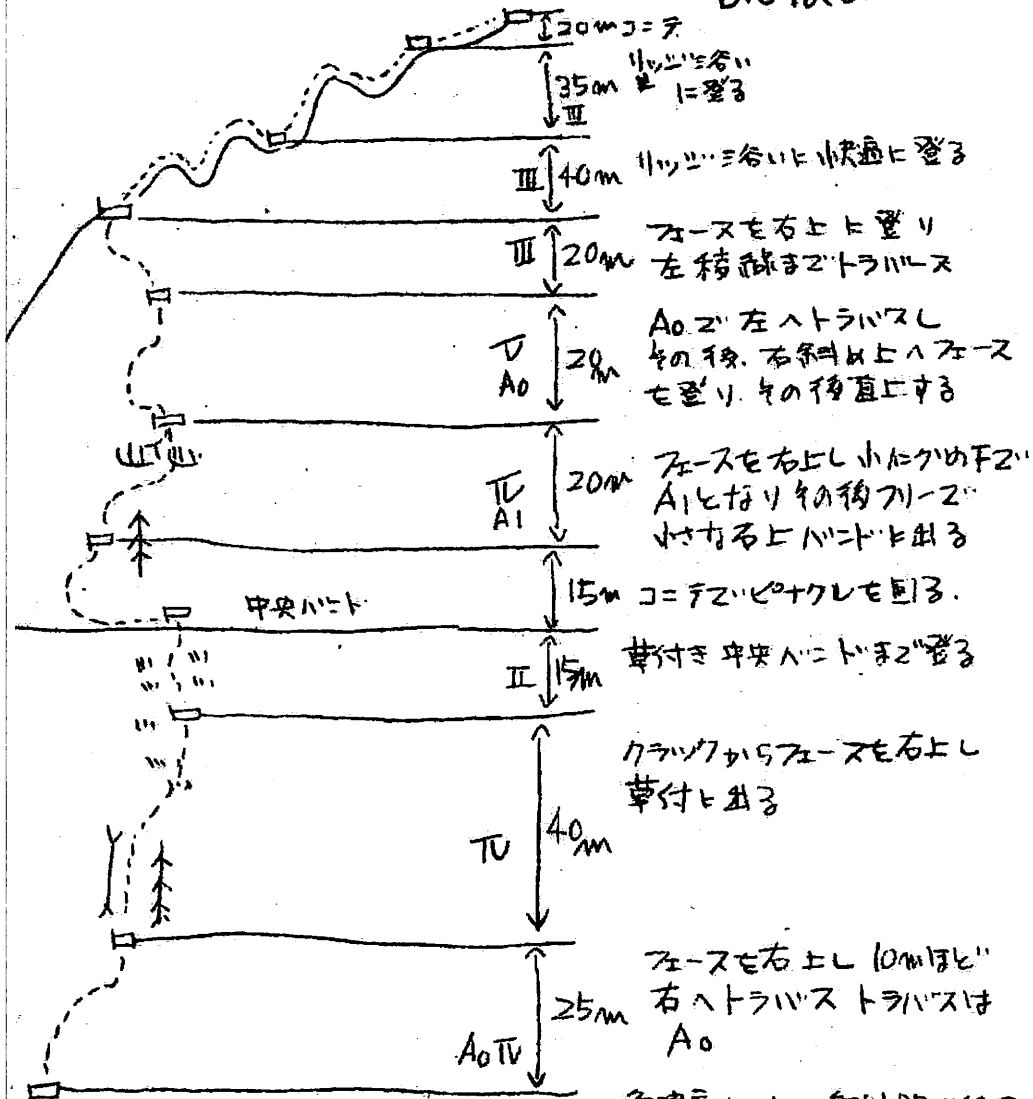 20mコンテ
35m リッジ沿い
III に登る
III 40m リッジ沿いに快適に登る
III 20m フェースを右上に登り
左稜線までトラバース
IV 20m A0で左へトラバスし
A0 その後、右斜め上へフェース
を登り、その後直上する
IV 20m フェースを右上し小ハングの下で
A1 A1となりその後フリーで
小さな右上バンドに出る
15m コンテでピナクルを回る.
中央バンド
II 15m 草付き中央バンドまで登る
クラックからフェースを右上し
草付に出る
IV 40m
フェースを右上し 10mほど
25m 右へトラバス トラバスは
A0 IV A0